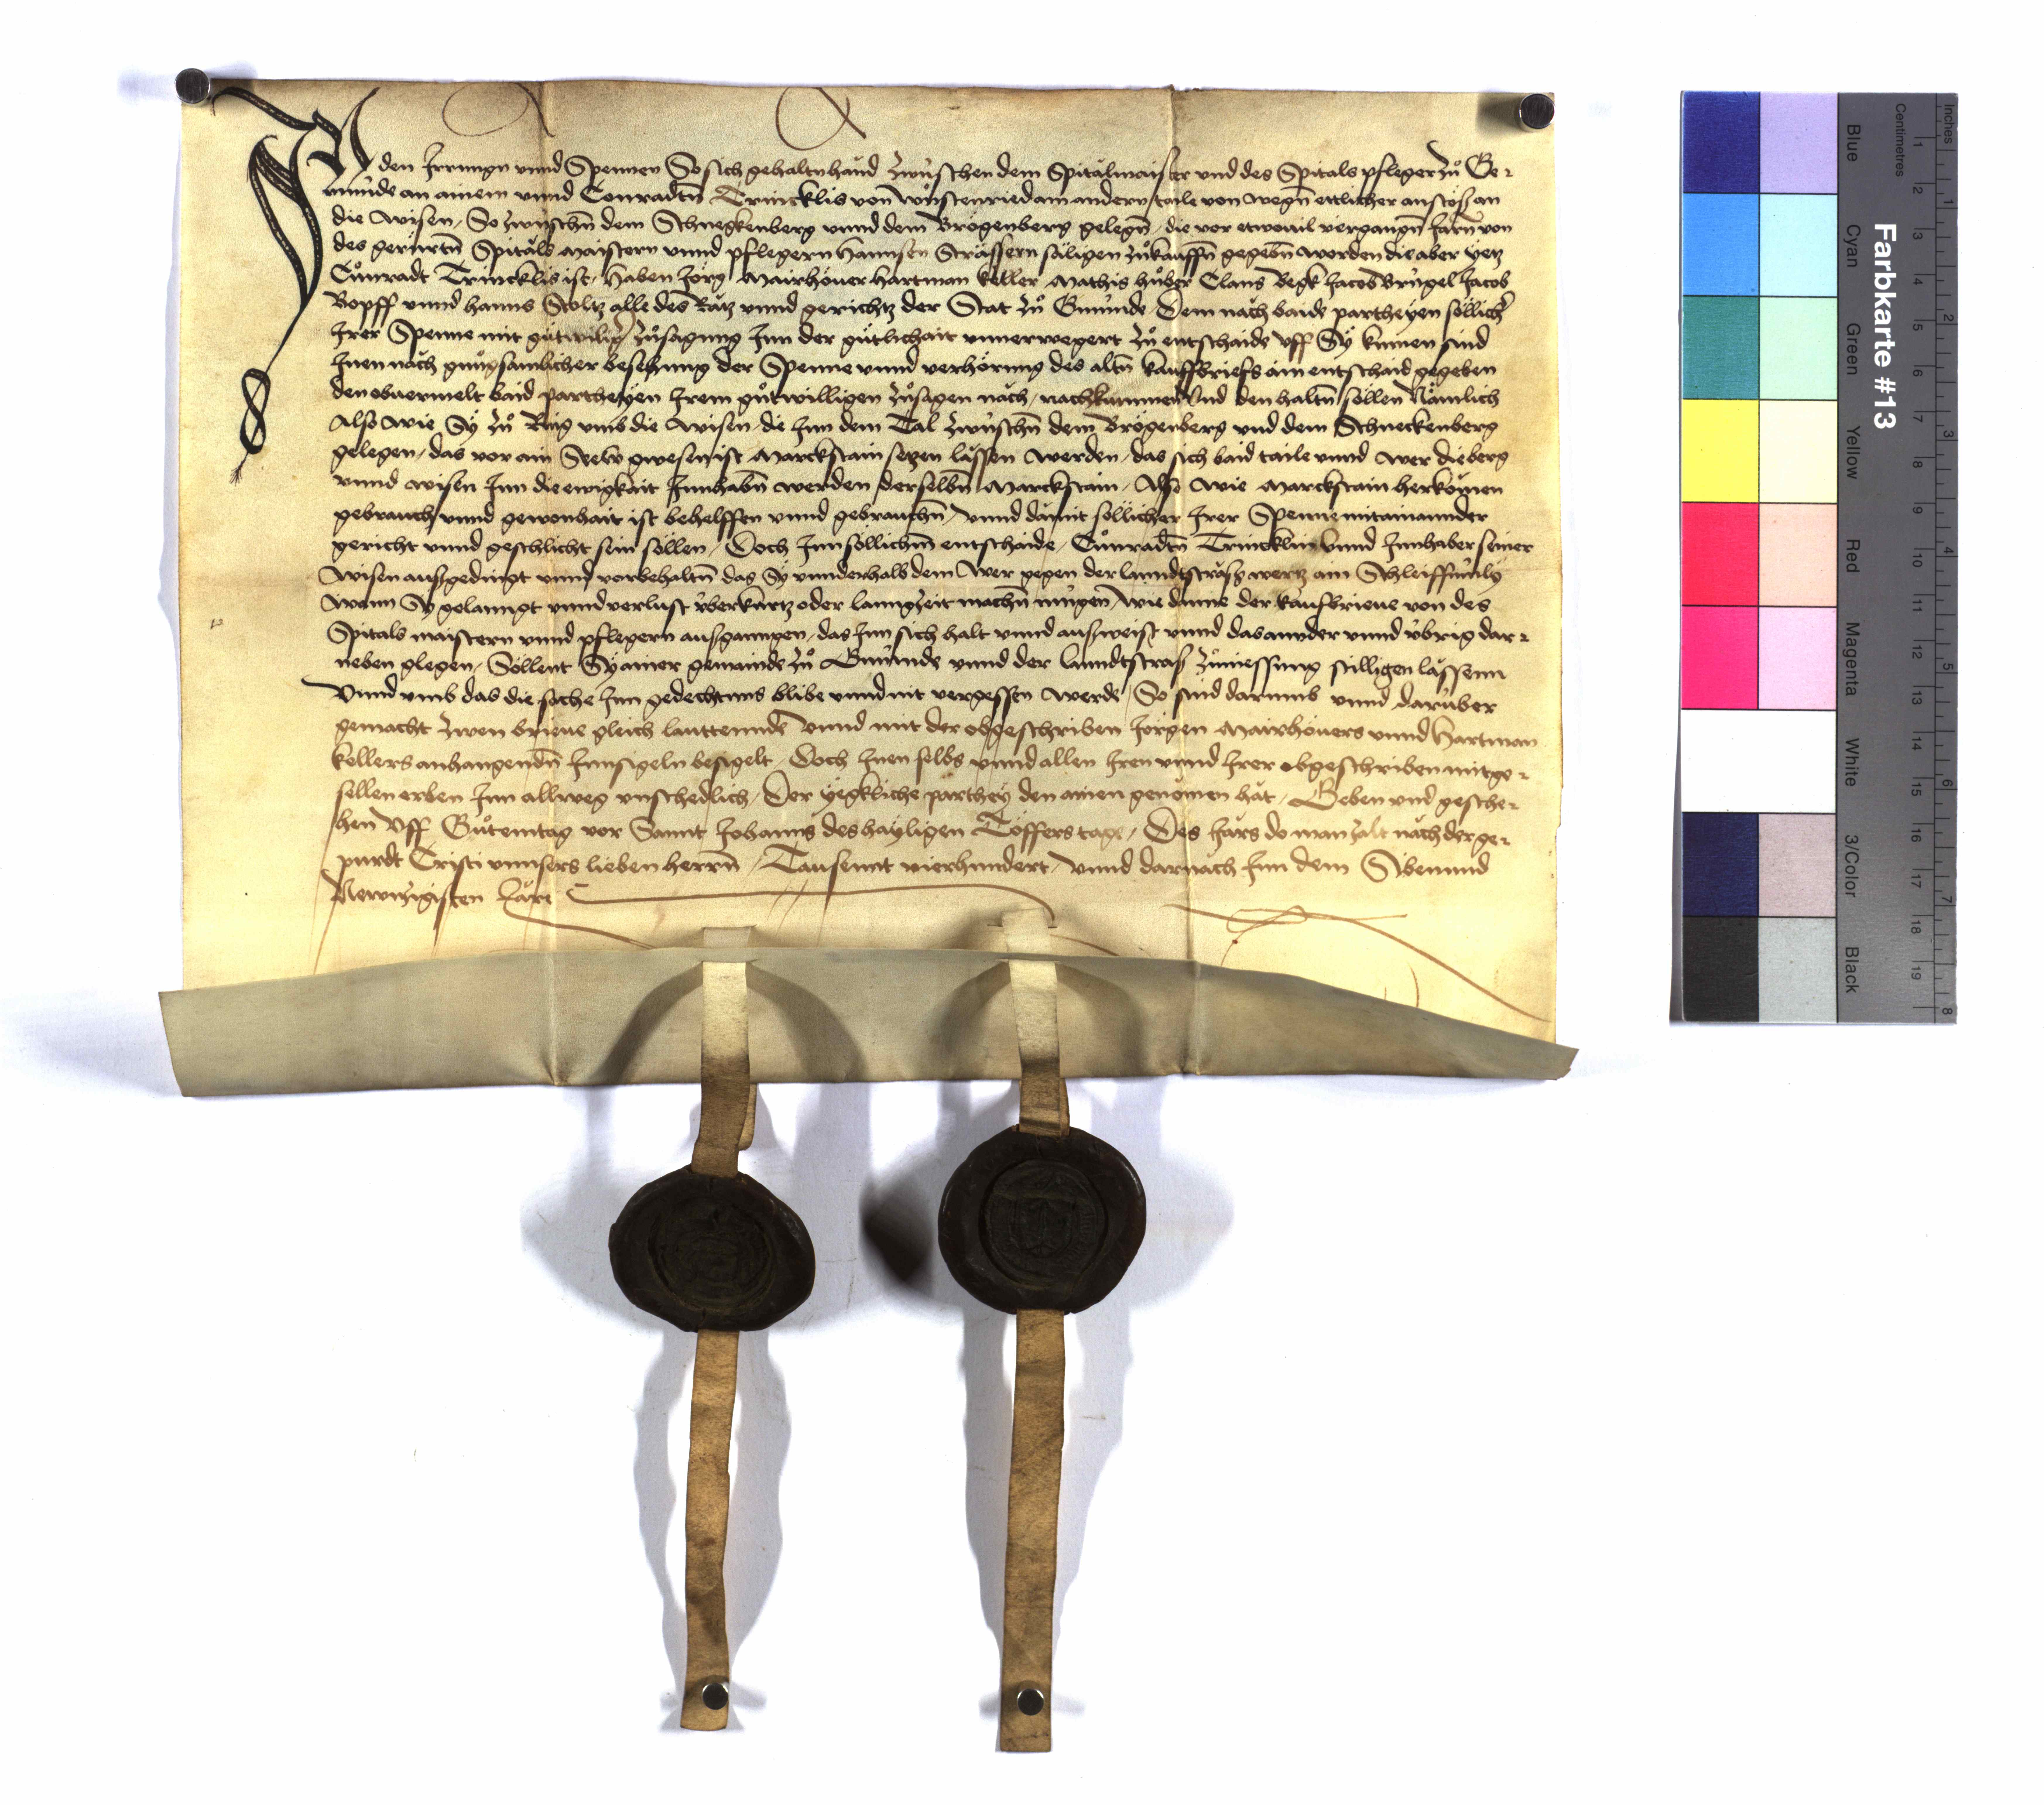 In den Irrungen vnnd Spennen So sich gehaltn hand zwüschen dem Spitälmaister vnd des Spitals pfleger zů Ge⸗
münde an ainem vnnd Conradtn̄ Trincklis von Wůstenried am andern taile von wegn̄ ettlicher anstös an
die Wisen, So zwüschn̄ dem Schnegkenberg vnnd dem Brögenberg gelegn̄, die vor etwouil vergangn̄ Jarn̄ von
des gerürtn̄ Spitäls Maistern vnnd pflegern Hannsen Strässern säligen zůkauffn̄ gegebn̄ worden die aber yetz
Cůnradt Trincklis ist, Haben Jörg Mairhöuer Hartman keller Mathis hůber Claus Begk Jacob Brügel Jacob
Bopff vnnd hanns Stoltz alle des Rätz vnnd gerichtz der Stat zů Gmünde Dem näch baide partheyen söllich
Irer Spenne mit gůtwillig zůsagung Inn der gůtlichait vnuerwegert zů entschaide vff Sÿ kumen sind
Inen näch gnůgsamlicher besehung der Spenne vnnd verhörung des altn̄ kauffbriefs ain entschaid gegeben
den obuermelt baid partheÿen Irem gůtwilligen zůsagen näch, nachkummen vnd den haltn̄ söllen Nämlich
Also wie Sÿ zů Ring vmb die Wisen, die Inn dem Tal zwüschn̄ dem Brögenberg vnd dem Schneckenberg
gelegen, das vor ain gwesen ist Marckstain setzen lässen werden, das sich baid taile vnnd wer die berg
vnnd wisen Inn die ewigkait Innhabn̄ werden derselbn̄ Marckstain, Also wie Marckstain herkömen
gebrauch vnnd gewonhait ist behelffen vnnd gebrauchn̄, vnnd dämit söllicher Irer Spenne mitainannder
gericht vnnd geschlicht sein söllen, Doch Inn sollichm̄ entschaide, Cůnradtn̄ Trincklin vnnd Innhaber seiner
Wisen aufsgedingt vnnd vorbehaltn̄ das Sÿ vnnderhalb dem Wer gegen der lanndtsträss wertz ain Schleiffmüly
Wann Sÿ gelanngt vnnd verlust überkurtz oder lanngzeit machn̄ mügen, Wie dann der kaufbrieue von des
Spitals maistern vnnd pflegern aufsganngen, das Inn sich halt vnnd aufsweist vnnd das annder vnnd übrig dar⸗
neben glegen, Söllent Sÿ ainer gemainde zů Gmünde vnnd der lanndtstrass zůniessung stilligen lässenn
Vnnd vmb das die sache Inn gedechtnus blibe vnnd nit vergessen werde, So sind darumb vnnd darüber
gemacht zwen brieue gleich lauttennde vnnd mit der obgeschriben Jörgen Mairhöuers vnnd Hartman
kellers anhangendn̄ Innsigeln besigelt, Doch Inen selbs vnnd allen Iren vnnd Irer obgeschriben mitge⸗
sellen erben Inn allweg vnschedlich, Der ÿegkliche parthey den ainen genömen hät, Geben vnd gesche⸗
hen Vff Gůtemtag vor Sannt Johanns des haÿligen Töffers tage, Des Järs do man zalt näch der ge⸗
purdt Cristi vnnsers lieben herrn̄, Tausennt vierhundert, vnnd darnäch Inn dem Sibenund
Newnzigisten Jare
Farbkarte #13
Inches
Centimetres
Blue
Cyan
Green
Yellow
Red
Magenta
White
3/Color
Black
1 2 3 4 5 6 7 8 9 10 11 12 13 14 15 16 17 18 19
1 2 3 4 5 6 7 8